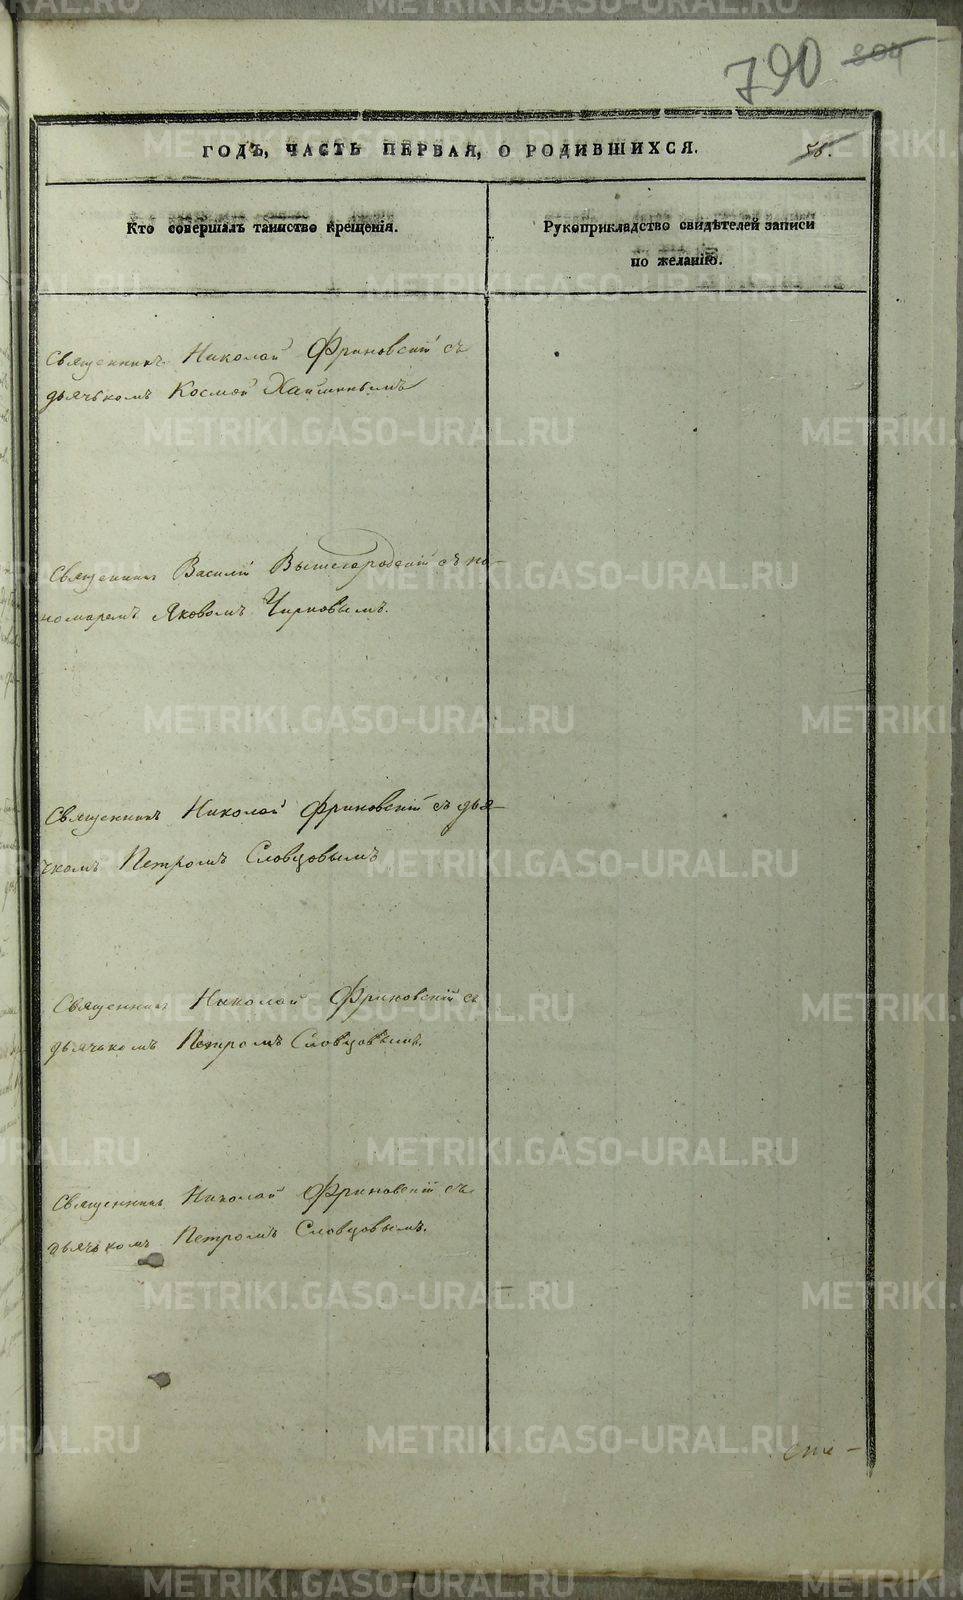 790 804
ГОДЪ, ЧАСТЬ ПЕРВАЯ, О РОДИВШИХСЯ. 58.
Кто совершалъ таинство крещенія.
Рукоприкладство свидѣтелей записи
по желанію.
Священникъ Николай Фриновскій съ
дьячькомъ Космой
Священникъ Василій Вышегородскій съ по-
номаремъ Яковомъ Чирковымъ.
Священникъ Николай Фриновскій съ дья-
чкомъ Петромъ Словцовымъ
Священникъ Николай Фриновскій съ
дьячькомъ Петромъ Словцовымъ.
Священникъ Николай Фриновскій съ
дьячькомъ Петромъ Словцовымъ.
METRIKI.GASO-URAL.RU